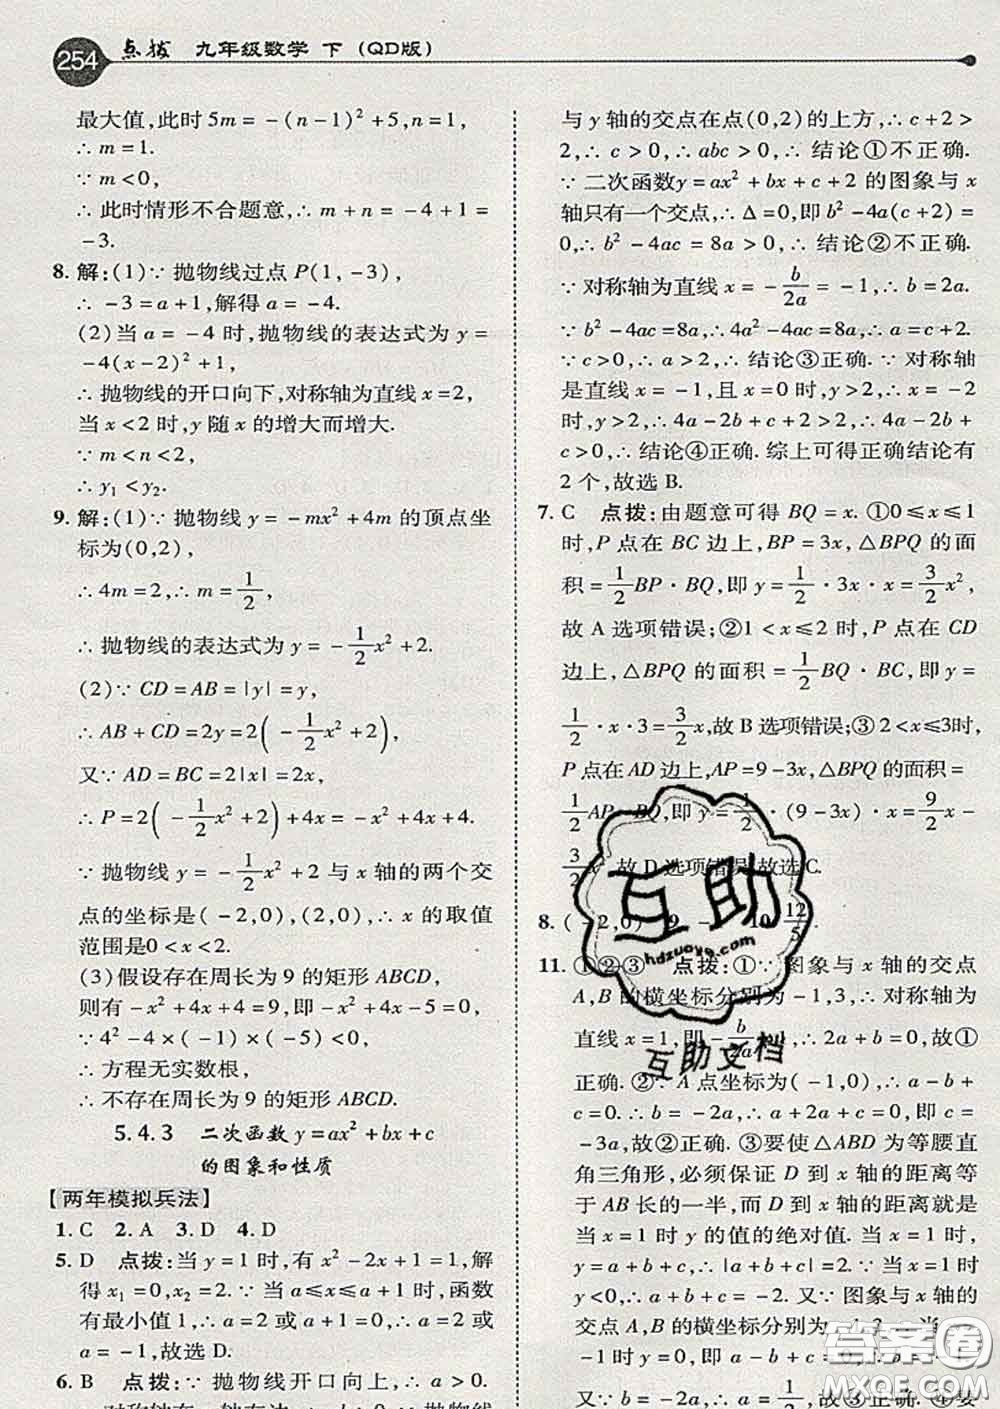 254 点拨 九年级数学 下 (QD版)
最大值,此时 5m = -(n-1)² + 5,n = 1,
∴ m = 1.
∵ m < 0,
∴ 此时情形不合题意,∴ m + n = -4 + 1 =
-3.
8. 解:(1)∵ 抛物线过点 P(1, -3),
∴ -3 = a + 1,解得 a = -4.
(2)当 a = -4 时,抛物线的表达式为 y =
-4(x-2)² + 1,
∴ 抛物线的开口向下,对称轴为直线 x = 2,
当 x < 2 时,y 随 x 的增大而增大.
∵ m < n < 2,
∴ y₁ < y₂.
9. 解:(1)∵ 抛物线 y = -mx² + 4m 的顶点坐
标为(0,2),
∴ 4m = 2,∴ m = 1/2,
∴ 抛物线的表达式为 y = -1/2x² + 2.
(2)∵ CD = AB = |y| = y,
∴ AB + CD = 2y = 2(-1/2x² + 2),
又∵ AD = BC = 2|x| = 2x,
∴ P = 2(-1/2x² + 2) + 4x = -x² + 4x + 4.
∵ 抛物线 y = -1/2x² + 2 与 x 轴的两个交
点的坐标是(-2,0),(2,0),∴ x 的取值
范围是0 < x < 2.
(3)假设存在周长为 9 的矩形 ABCD,
则有 -x² + 4x + 4 = 9,∴ -x² + 4x - 5 = 0,
∵ 4² - 4 × (-1) × (-5) = -4 < 0,
∴ 方程无实数根,
∴ 不存在周长为 9 的矩形 ABCD.
5.4.3 二次函数 y = ax² + bx + c
的图象和性质
【两年模拟兵法】
1. C 2. A 3. D 4. D
5. D 点拨:当 y = 1 时,有 x² - 2x + 1 = 1,解
得 x₁ = 0,x₂ = 2.∵ 当 a ≤ x ≤ a + 1 时,函数
有最小值 1,∴ a = 2 或 a + 1 = 0,∴ a = 2 或
a = -1,故选 D.
6. B 点拨:∵ 抛物线开口向上,∴ a > 0.
与 y 轴的交点在点(0,2)的上方,∴ c + 2 >
2,∴ c > 0,∴ abc > 0,∴ 结论①不正确.
∵ 二次函数y = ax² + bx + c + 2 的图象与 x
轴只有一个交点,∴ Δ = 0,即 b² - 4a(c + 2) =
0,∴ b² - 4ac = 8a > 0,∴ 结论②不正确.
∵ 对称轴为直线 x = -b/2a = -1,∴ b = 2a.
∵ b² - 4ac = 8a,∴ 4a² - 4ac = 8a,∴ a = c + 2.
∵ c > 0,∴ a > 2,∴ 结论③正确.∵ 对称轴
是直线 x = -1,且 x = 0 时,y > 2,∴ x = -2
时,y > 2,∴ 4a - 2b + c + 2 > 2,∴ 4a - 2b +
c > 0,∴ 结论④正确. 综上可得正确结论有
2 个,故选 B.
7. C 点拨:由题意可得 BQ = x. ①0 ≤ x ≤ 1
时,P 点在 BC 边上,BP = 3x,△BPQ 的面
积 = 1/2BP · BQ,即 y = 1/2 · 3x · x = 3/2x²,
故 A 选项错误;②1 < x ≤ 2 时,P 点在 CD
边上,△BPQ 的面积 = 1/2BQ · BC,即 y =
1/2 · x · 3 = 3/2x,故 B 选项错误;③ 2 < x ≤ 3时,
P 点在 AD 边上,AP = 9 - 3x,△BPQ 的面积 =
1/2AP · BQ,即 y = 1/2 · (9 - 3x) · x = 9/2x -
3/2x²,故 D 选项错误.故选 C.
8. (-2,0) 9. - 10. 12/5
11. ①②③ 点拨:①∵ 图象与 x 轴的交点
A,B 的横坐标分别为 -1,3,∴ 对称轴为
直线 x = 1,即 -b/2a = 1,∴ 2a + b = 0,故①
正确. ②∵ A 点坐标为(-1,0),∴ a - b +
c = 0.∵ b = -2a,∴ a + 2a + c = 0,即 c =
-3a,故②正确. ③要使△ABD 为等腰直
角三角形,必须保证 D 到 x 轴的距离等
于 AB 长的一半,而 D 到 x 轴的距离为
当 x = 1 时 y 的值的绝对值. 当 x = 1 时,
y = a + b + c,∴ |a + b + c| = 2.∵ 当 x = 1 时
y < 0,∴ a + b + c = -2.又∵ 图象与 x 轴的
交点 A,B 的横坐标分别为 -1,3,∴ 当 x =
-1 时 y = 0,即 a - b + c = 0,
又∵ b = -2a,∴ a = 1/2,故③正确. ④要
互助
hdzuoye.com
互助文档
答案圈
MXQE.COM